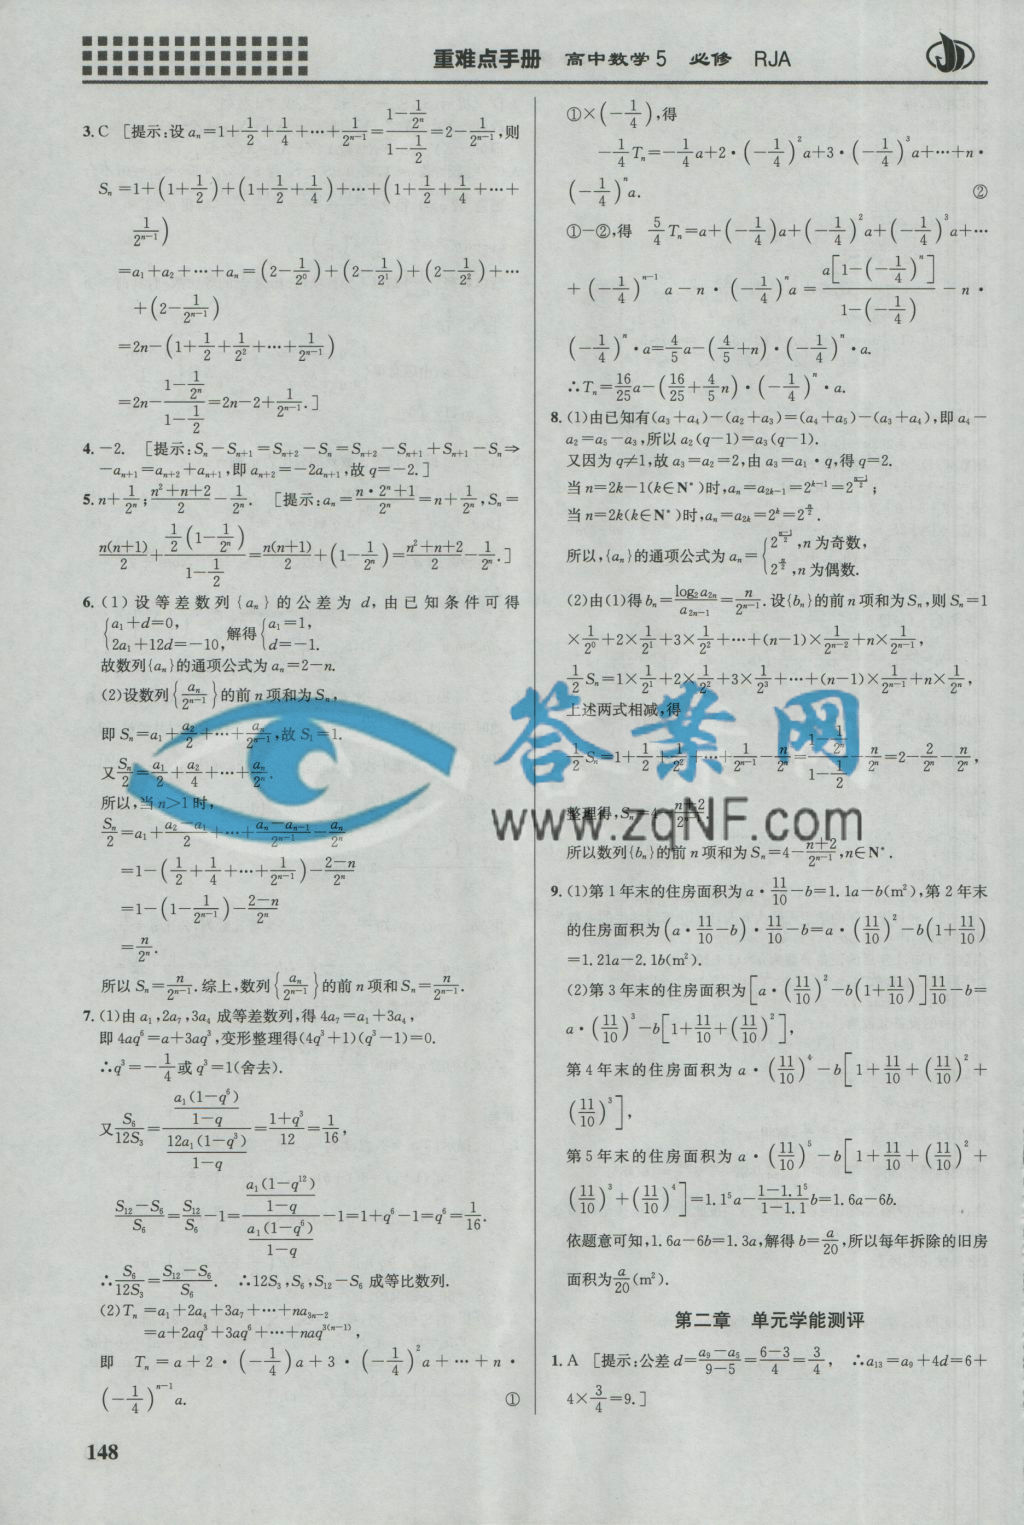 重难点手册 高中数学5 必修 RJA
3. C [提示:设aₙ=1+1/2+1/4+…+1/2ⁿ⁻¹=(1-1/2ⁿ)/(1-1/2)=2-1/2ⁿ⁻¹,则
Sₙ=1+(1+1/2)+(1+1/2+1/4)+…+(1+1/2+1/4+…+
1/2ⁿ⁻¹)
=a₁+a₂+…+aₙ=(2-1/2⁰)+(2-1/2¹)+(2-1/2²)+…
+(2-1/2ⁿ⁻¹)
=2n-(1+1/2+1/2²+…+1/2ⁿ⁻¹)
=2n-(1-1/2ⁿ)/(1-1/2)=2n-2+1/2ⁿ⁻¹.]
4. -2. [提示:Sₙ-Sₙ₊₁=Sₙ₊₂-Sₙ=Sₙ₊₂-Sₙ₊₁+Sₙ₊₁-Sₙ⇒
-aₙ₊₁=aₙ₊₂+aₙ₊₁,即aₙ₊₂=-2aₙ₊₁,故q=-2.]
5. n+1/2ⁿ;(n²+n+2)/2-1/2ⁿ. [提示:aₙ=(n·2ⁿ+1)/2ⁿ=n+1/2ⁿ,Sₙ=
n(n+1)/2+(1/2(1-1/2ⁿ))/(1-1/2)=n(n+1)/2+(1-1/2ⁿ)=(n²+n+2)/2-1/2ⁿ.]
6. (1)设等差数列{aₙ}的公差为d,由已知条件可得
{a₁+d=0, 2a₁+12d=-10, 解得{a₁=1, d=-1.
故数列{aₙ}的通项公式为aₙ=2-n.
(2)设数列{aₙ/2ⁿ⁻¹}的前n项和为Sₙ,
即Sₙ=a₁+a₂/2+…+aₙ/2ⁿ⁻¹,故S₁=1.
又Sₙ/2=a₁/2+a₂/4+…+aₙ/2ⁿ.
所以,当n>1时,
Sₙ/2=a₁+(a₂-a₁)/2+…+(aₙ-aₙ₋₁)/2ⁿ⁻¹-aₙ/2ⁿ
=1-(1/2+1/4+…+1/2ⁿ⁻¹)-(2-n)/2ⁿ
=1-(1-1/2ⁿ⁻¹)-(2-n)/2ⁿ
=n/2ⁿ.
所以Sₙ=n/2ⁿ⁻¹.综上,数列{aₙ/2ⁿ⁻¹}的前n项和Sₙ=n/2ⁿ⁻¹.
7. (1)由a₁,2a₇,3a₄成等差数列,得4a₇=a₁+3a₄,
即4aq⁶=a+3aq³,变形整理得(4q³+1)(q³-1)=0.
∴q³=-1/4或q³=1(舍去).
又S₆/12S₃=(a₁(1-q⁶)/(1-q))/(12a₁(1-q³)/(1-q))=(1+q³)/12=1/16,
(S₁₂-S₆)/S₆=S₁₂/S₆-1=(a₁(1-q¹²)/(1-q))/(a₁(1-q⁶)/(1-q))-1=1+q⁶-1=q⁶=1/16.
∴S₆/12S₃=(S₁₂-S₆)/S₆. ∴12S₃,S₆,S₁₂-S₆成等比数列.
(2)Tₙ=a₁+2a₄+3a₇+…+na₃ₙ₋₂
=a+2aq³+3aq⁶+…+naq³⁽ⁿ⁻¹⁾,
即 Tₙ=a+2·(-1/4)a+3·(-1/4)²a+…+n·
(-1/4)ⁿ⁻¹a. ①
148
①×(-1/4),得
-1/4Tₙ=-1/4a+2·(-1/4)²a+3·(-1/4)³a+…+n·
(-1/4)ⁿa. ②
①-②,得 5/4Tₙ=a+(-1/4)a+(-1/4)²a+(-1/4)³a+…
+(-1/4)ⁿ⁻¹a-n·(-1/4)ⁿa=a[1-(-1/4)ⁿ]/(1-(-1/4))-n·
(-1/4)ⁿ·a=4/5a-(4/5+n)·(-1/4)ⁿ·a.
∴Tₙ=16/25a-(16/25+4/5n)·(-1/4)ⁿ·a.
8. (1)由已知有(a₃+a₄)-(a₂+a₃)=(a₄+a₅)-(a₃+a₄),即a₄-
a₂=a₅-a₃,所以a₂(q-1)=a₃(q-1).
又因为q≠1,故a₃=a₂=2,由a₃=a₁·q,得q=2.
当n=2k-1(k∈N*)时,aₙ=a₂ₖ₋₁=2ᵏ⁻¹=2^((n-1)/2);
当n=2k(k∈N*)时,aₙ=a₂ₖ=2ᵏ=2^(n/2).
所以,{aₙ}的通项公式为aₙ={2^((n-1)/2),n为奇数, 2^(n/2),n为偶数.
(2)由(1)得bₙ=log₂a₂ₙ/a₂ₙ₋₁=n/2ⁿ⁻¹.设{bₙ}的前n项和为Sₙ,则Sₙ=1
×1/2⁰+2×1/2¹+3×1/2²+…+(n-1)×1/2ⁿ⁻²+n×1/2ⁿ⁻¹,
1/2Sₙ=1×1/2¹+2×1/2²+3×1/2³+…+(n-1)×1/2ⁿ⁻¹+n×1/2ⁿ,
上述两式相减,得
1/2Sₙ=1+1/2+1/2²+…+1/2ⁿ⁻¹-n/2ⁿ=(1-1/2ⁿ)/(1-1/2)-n/2ⁿ=2-2/2ⁿ-n/2ⁿ,
整理得,Sₙ=4-(n+2)/2ⁿ⁻¹.
所以数列{bₙ}的前n项和为Sₙ=4-(n+2)/2ⁿ⁻¹,n∈N*.
9. (1)第1年末的住房面积为a·11/10-b=1.1a-b(m²),第2年末
的住房面积为(a·11/10-b)·11/10-b=a·(11/10)²-b(1+11/10)
=1.21a-2.1b(m²).
(2)第3年末的住房面积为[a·(11/10)²-b(1+11/10)]11/10-b=
a·(11/10)³-b[1+11/10+(11/10)²],
第4年末的住房面积为a·(11/10)⁴-b[1+11/10+(11/10)²+
(11/10)³],
第5年末的住房面积为a·(11/10)⁵-b[1+11/10+(11/10)²+
(11/10)³+(11/10)⁴]=1.1⁵a-(1-1.1⁵)/(1-1.1)b=1.6a-6b.
依题意可知,1.6a-6b=1.3a,解得b=a/20,所以每年拆除的旧房
面积为a/20(m²).
第二章 单元学能测评
1. A [提示:公差d=(a₉-a₅)/(9-5)=(6-3)/4=3/4, ∴a₁₃=a₉+4d=6+
4×3/4=9.]
答案网
www.zqNF.com